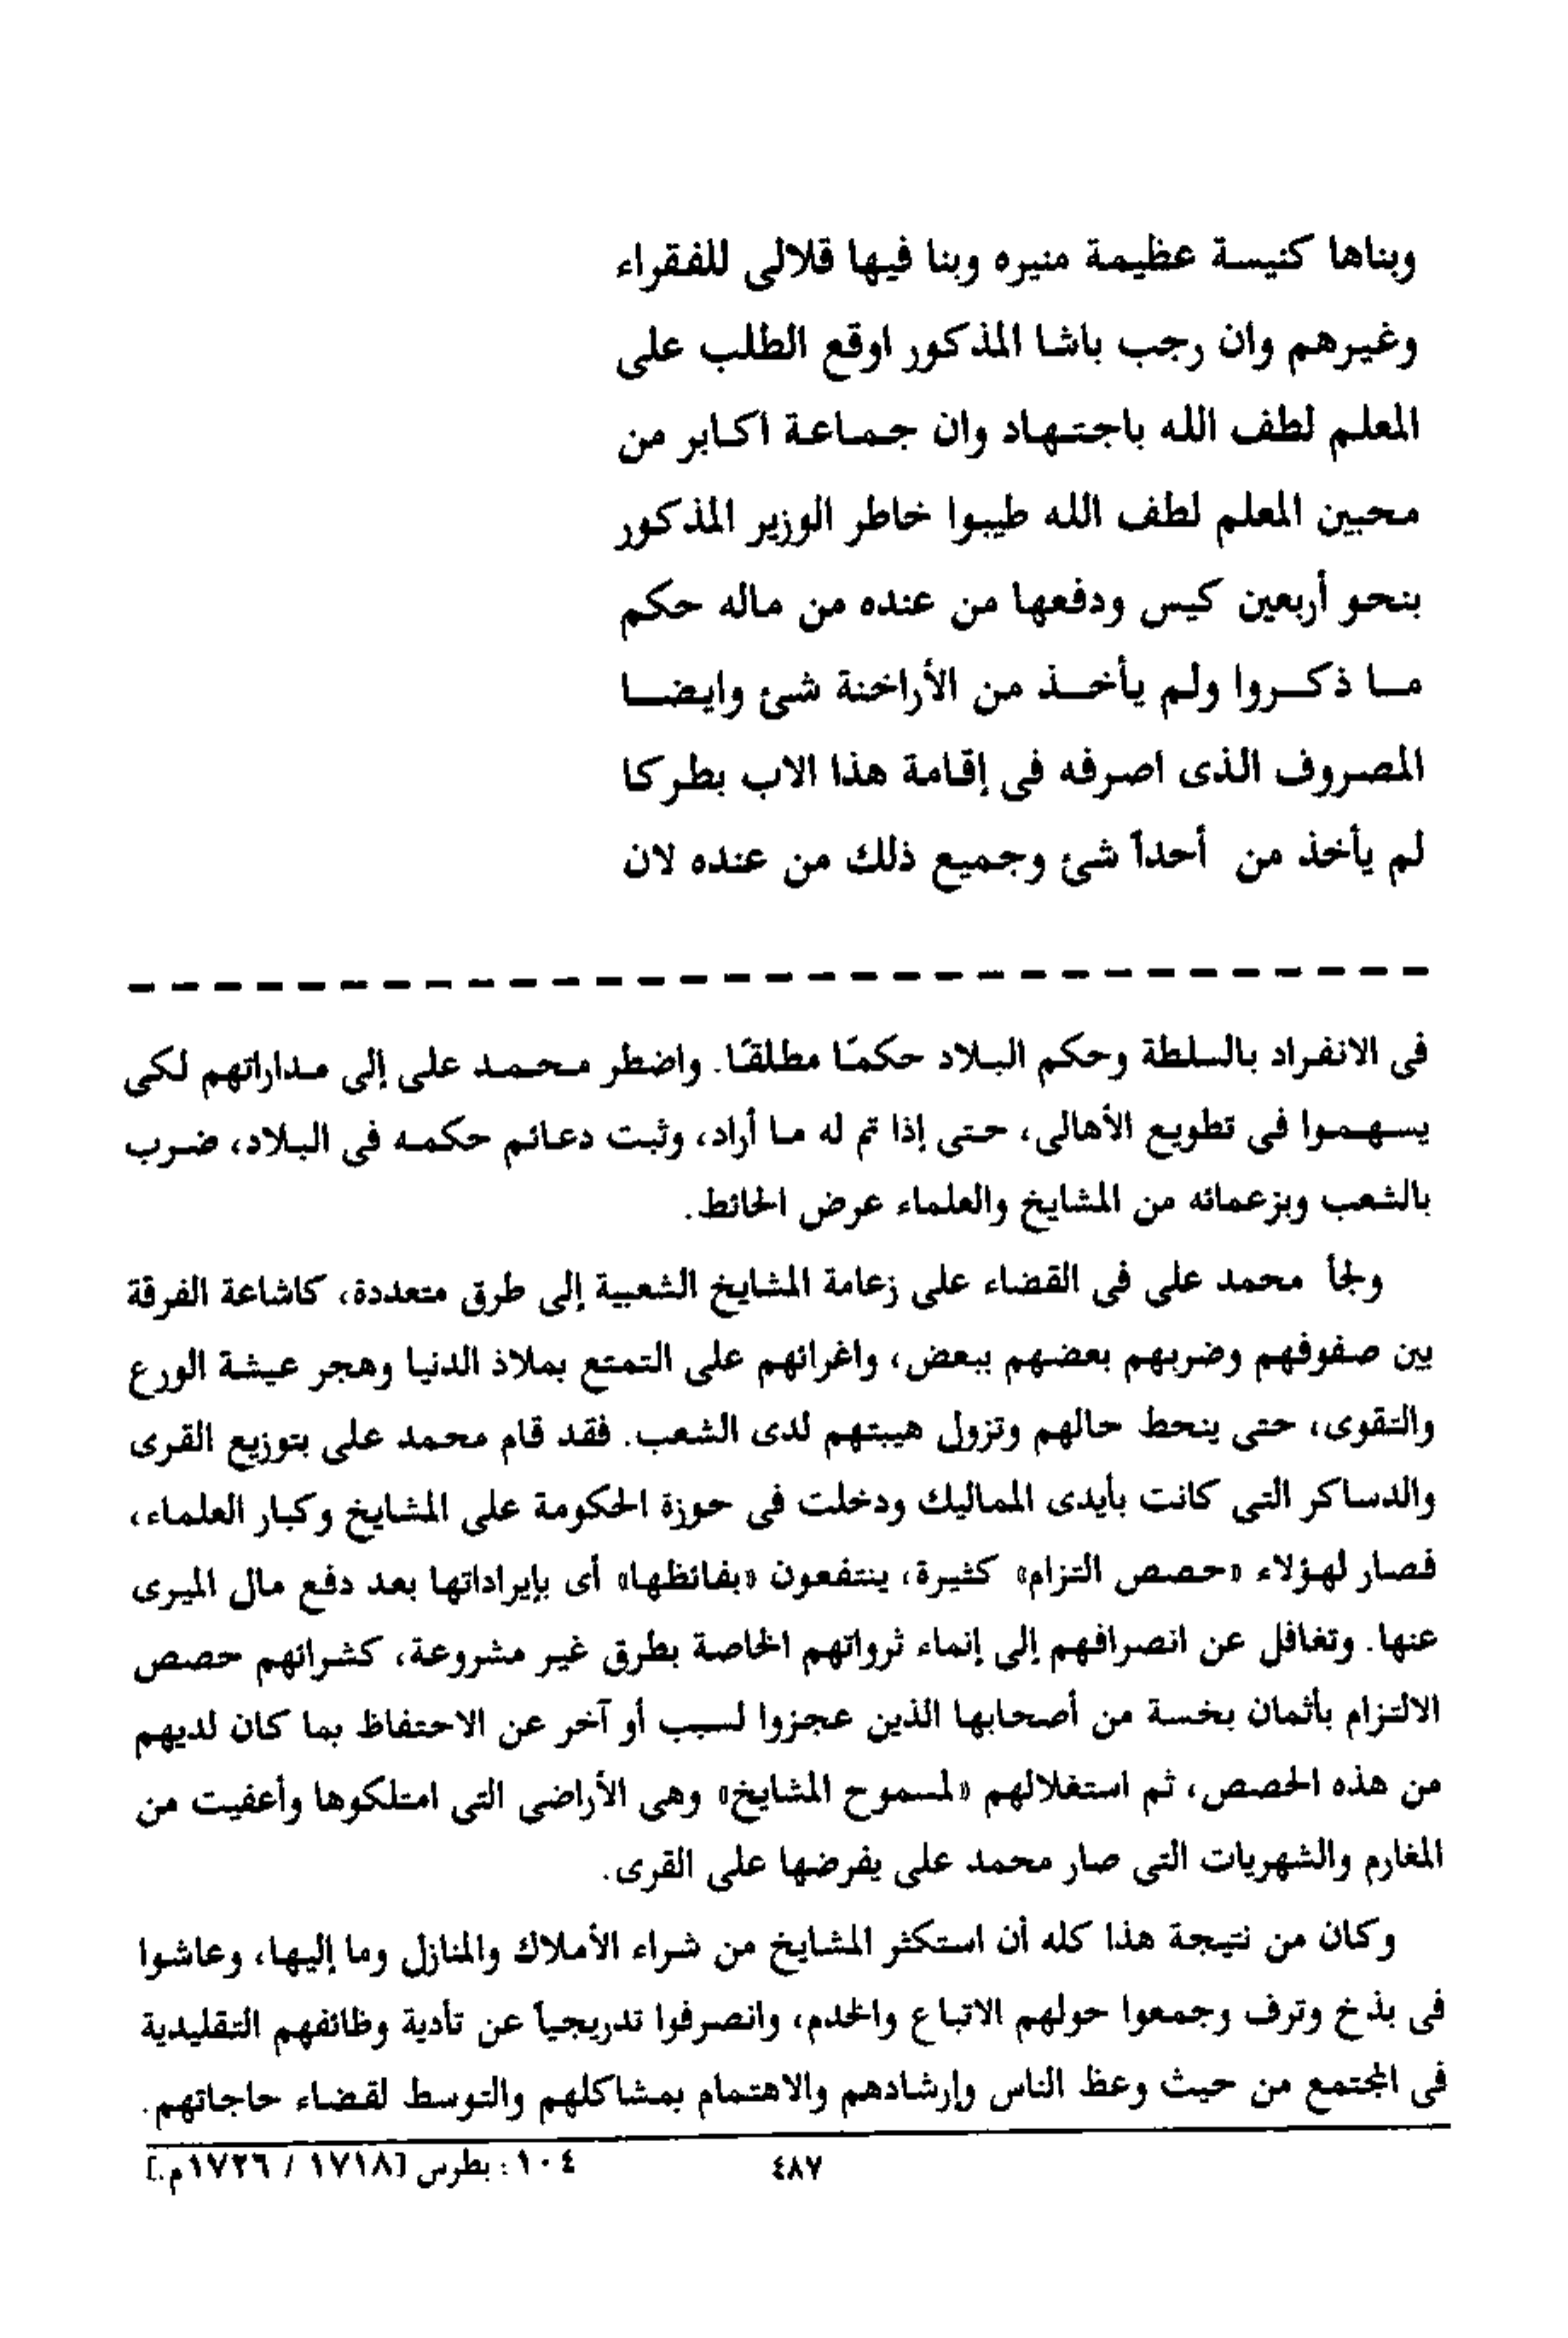 وبناها كنيسة عظيمة منيره وبنا فيها قلالى للفقراء
وغيرهم وان رجب باشا المذكور اوقع الطلب على
المعلم لطف الله باجتهاد وان جماعة اكابر من
محبين المعلم لطف الله طيبوا خاطر الوزير المذكور
بنحو أربعين كيس ودفعها من عنده من ماله حكم
ما ذكروا ولم يأخذ من الأراخنة شئ وايضا
المصروف الذى اصرفه فى إقامة هذا الاب بطركا
لم يأخذ من أحداً شئ وجميع ذلك من عنده لان
فى الانفراد بالسلطة وحكم البلاد حكمًا مطلقًا. واضطر محمد على إلى مداراتهم لكى
يسهموا فى تطويع الأهالى، حتى إذا تم له ما أراد، وثبت دعائم حكمه فى البلاد، ضرب
بالشعب وبزعمائه من المشايخ والعلماء عرض الحائط.
ولجأ محمد على فى القضاء على زعامة المشايخ الشعبية إلى طرق متعددة، كاشاعة الفرقة
بين صفوفهم وضربهم بعضهم ببعض، واغرائهم على التمتع بملاذ الدنيا وهجر عيشة الورع
والتقوى، حتى ينحط حالهم وتزول هيبتهم لدى الشعب. فقد قام محمد على بتوزيع القرى
والدساكر التى كانت بأيدى المماليك ودخلت فى حوزة الحكومة على المشايخ وكبار العلماء،
فصار لهؤلاء «حصص التزام» كثيرة، ينتفعون «بفائظها» أى بإيراداتها بعد دفع مال الميرى
عنها. وتغافل عن انصرافهم إلى إنماء ثرواتهم الخاصة بطرق غير مشروعة، كشرائهم حصص
الالتزام بأثمان بخسة من أصحابها الذين عجزوا لسبب أو آخر عن الاحتفاظ بما كان لديهم
من هذه الحصص، ثم استغلالهم «لمسموح المشايخ» وهى الأراضى التى امتلكوها وأعفيت من
المغارم والشهريات التى صار محمد على يفرضها على القرى.
وكان من نتيجة هذا كله أن استكثر المشايخ من شراء الأملاك والمنازل وما إليها، وعاشوا
فى بذخ وترف وجمعوا حولهم الاتباع والخدم، وانصرفوا تدريجياً عن تأدية وظائفهم التقليدية
فى المجتمع من حيث وعظ الناس وإرشادهم والاهتمام بمشاكلهم والتوسط لقضاء حاجاتهم.
٤٨٧
١٠٤ : بطرس [١٧١٨ / ١٧٢٦م.]